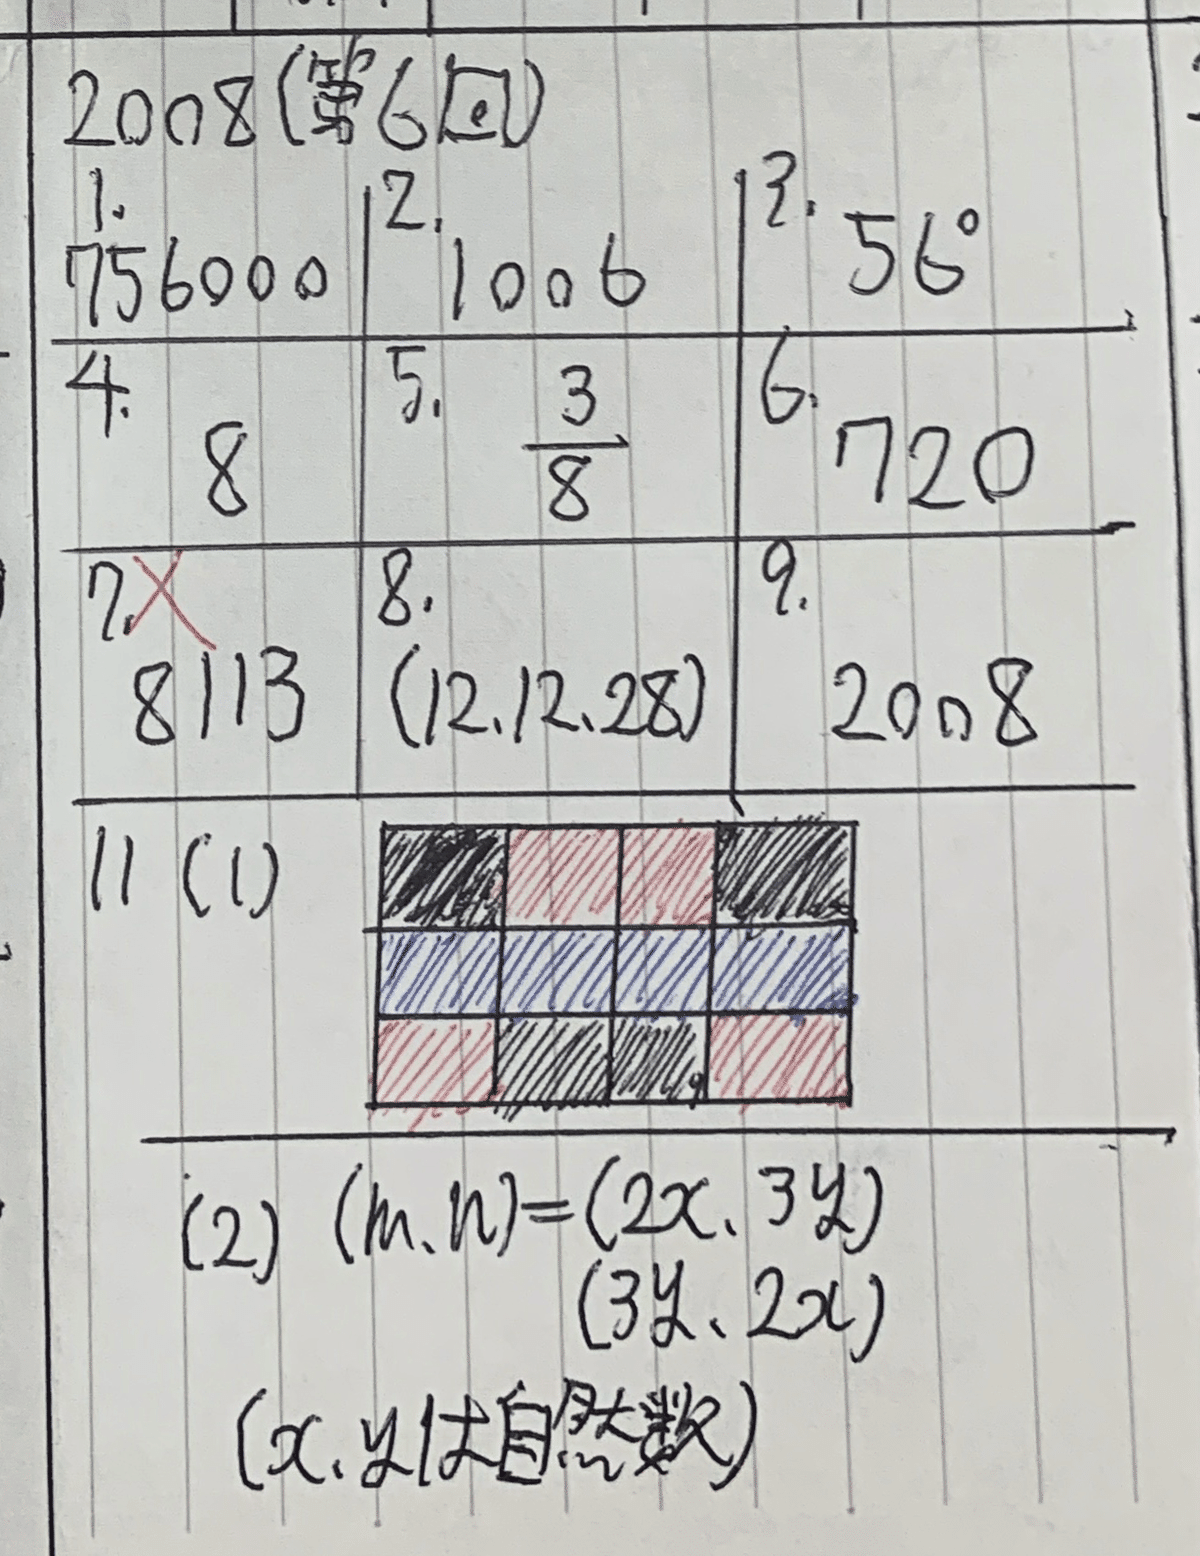 2008(第6回)
1. 2. 3.
756000 1006 56°
4. 5. 6.
8 3/8 720
7. 8. 9.
8113 (12.12.28) 2008
11 (1)
(2) (m、n)=(2x、3y)
(3y、2x)
(x、yは自然数)